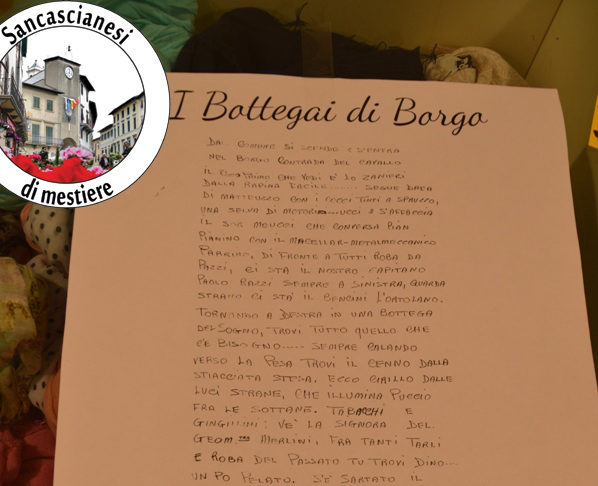 Sancascianesi
di mestiere
I Bottegai di Borgo
DAL COMUNE SI SCENDE E S'ENTRA
NEL BORGO CONTRADA DEL CAVALLO
IL PRIMO CHE VEDI È LO ZANIERI
DALLA RAPINA FACILE...... SEGUE
DI MATTEUZZO CON I COCCI TINTI A SPRUZZO,
UNA SELVA DI MOTORI UCCI S'AFFACCIA
IL SOR MEUCCI CHE CONVERSA PIAN
PIANINO CON IL MACELLAR-METALMECCANICO
PARRINI, DI FRONTE A TUTTI ROBA DA
PAZZI, CI STÀ IL NOSTRO CAPITANO
PAOLO RAZZI SEMPRE A SINISTRA, GUARDA
STRANO CI STÀ IL BENCINI L'ORTOLANO.
TORNANDO A DESTRA IN UNA BOTTEGA
DEL SOGNO, TROVI TUTTO QUELLO CHE
C'È BISOGNO..... SEMPRE CALANDO
VERSO LA PESA TROVI IL CENNO DALLA
STIACCIATA STESA. ECCO CIRILLO DALLE
LUCI STRANE, CHE ILLUMINA PUCCIO
FRA LE SOTTANE. TABACCHI E
GINGILLINI: V'È LA SIGNORA DEL
GEOM. MERLINI, FRA TANTI TARLI
E ROBA DEL PASSATO TU TROVI DINO....
UN PO PELATO. S'È SARTATO IL